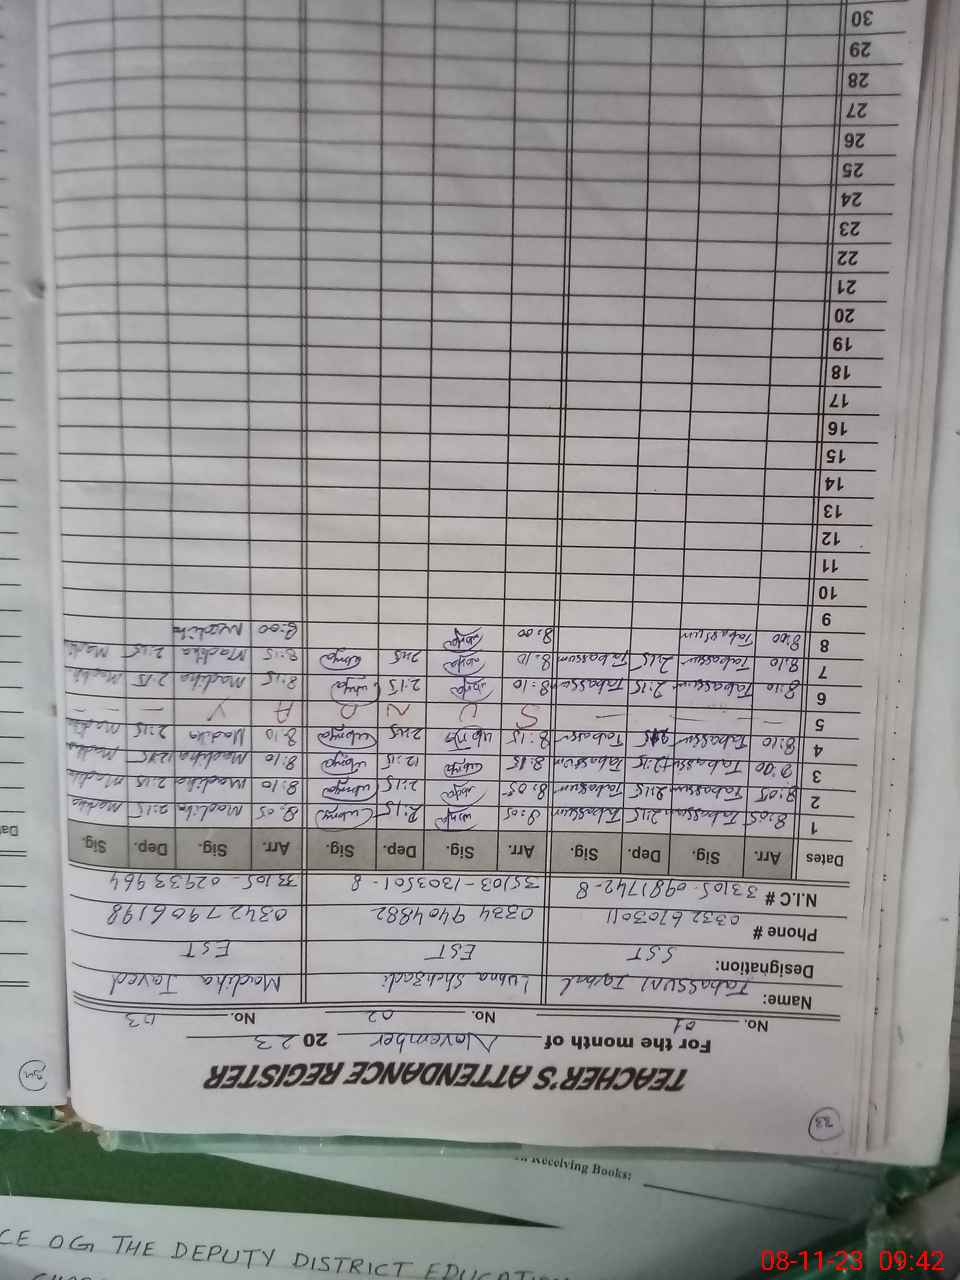 33
TEACHER'S ATTENDANCE REGISTER
For the month of November 2023
No. 01 No. 02 No. 03
Name: Tabassum Lubna Shehzadi Madiha Javed
Designation: SST EST EST
Phone # 0332 6703011 0334 9404882 0342 7906198
N.I.C # 33105-0981742-8 35103-1303501-8 33105-02933964
Dates Arr. Sig. Dep. Sig. Arr. Sig. Dep. Sig. Arr. Sig. Dep. Sig.
1 8:05 Tabassum 2:15 Tabassum 8:05 Lubna 2:15 Lubna 8:05 Madiha 2:15 Madiha
2 8:05 Tabassum 2:15 Tabassum 8:05 Lubna 2:15 Lubna 8:10 Madiha 2:15 Madiha
3 8:00 Tabassum 12:15 Tabassum 8:15 Lubna 12:15 Lubna 8:10 Madiha 12:15 Madiha
4 8:10 Tabassum 2:15 Tabassum 8:15 Lubna 2:15 Lubna 8:10 Madiha 2:15 Madiha
5 — — — — S U N D A Y — —
6 8:10 Tabassum 2:15 Tabassum 8:10 Lubna 2:15 Lubna 8:15 Madiha 2:15 Madiha
7 8:10 Tabassum 2:15 Tabassum 8:10 Lubna 2:15 Lubna 8:15 Madiha 2:15 Madiha
8 8:00 Tabassum 8:00 Lubna 8:00 Madiha
9
10
11
12
13
14
15
16
17
18
19
20
21
22
23
24
25
26
27
28
29
30
Receiving Books:
CE OG THE DEPUTY DISTRICT EDUCATION
08-11-23 09:42